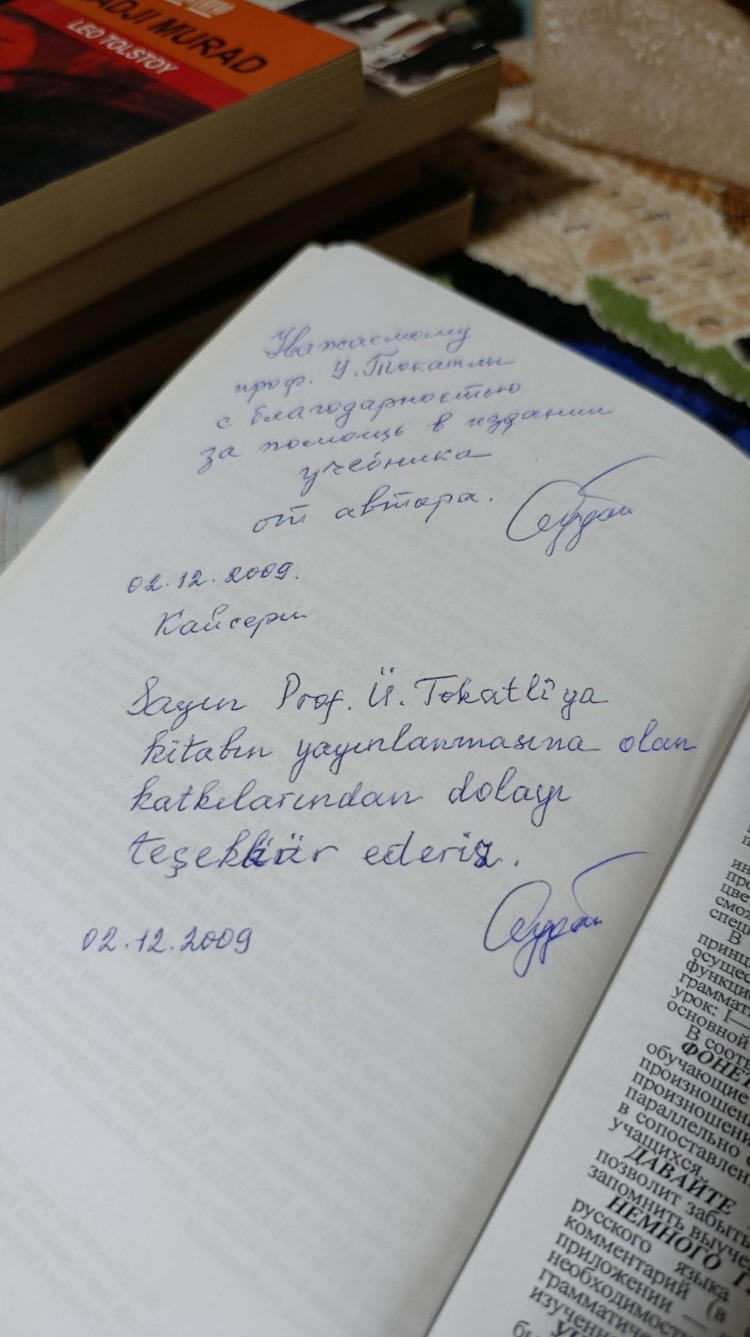 ADJI MURAD
LEO TOLSTOY
Уважаемому
проф. У. Токатлы
с благодарностью
за помощь в издании
учебника
от автора.
02.12.2009.
Кайсери
Sayın Prof. Ü. Tokatlîya
kitabın yayınlanmasına olan
katkılarından dolayı
teşekkür ederiz.
02.12.2009
В
принц
осущес
функци
граммати
урок: I—
основной
В соотв
ФОНЕТ
обучающие
произношени
произношени
параллельно с
в сопоставлен
учащихся.
ДАВАЙТЕ
позволит забыть
запомнить выуче
НЕМНОГО Г
русского языка
комментарий (в
приложении —
необходимост
грамматич
изучени